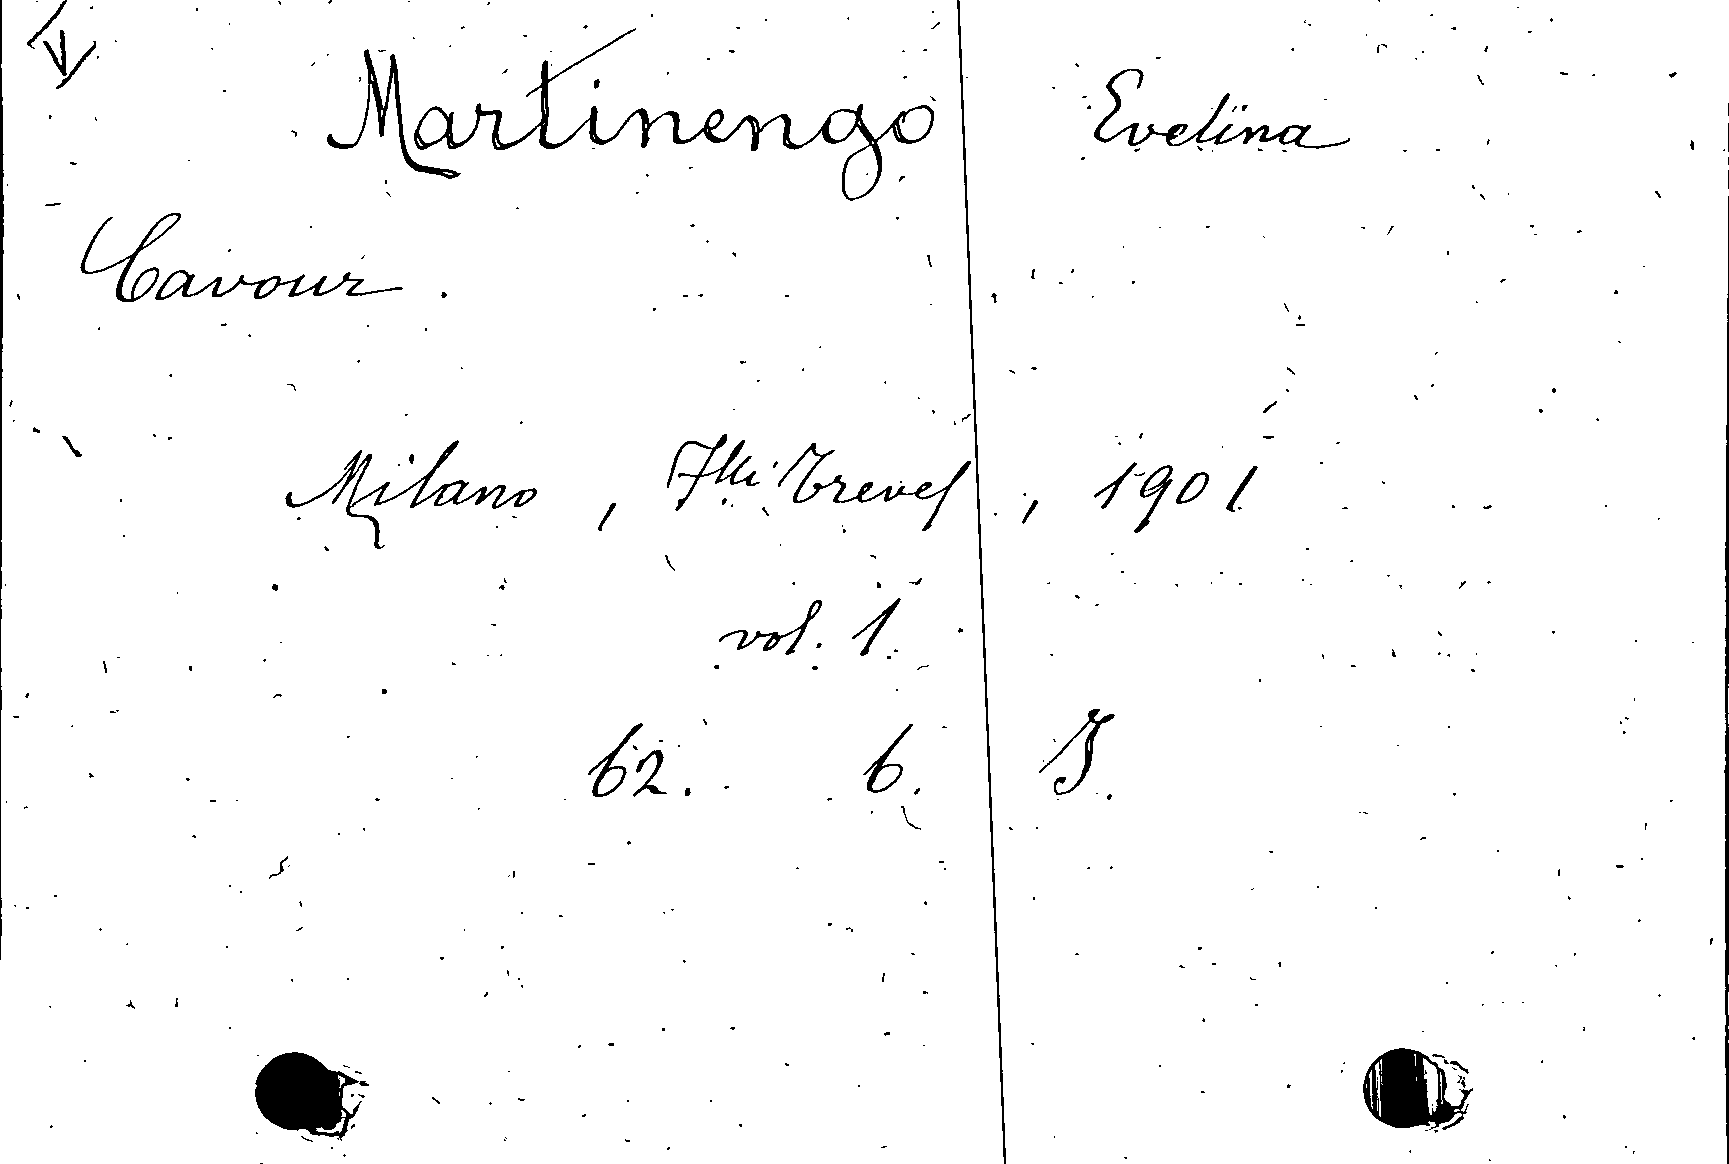 Martinengo Evelina
Cavour.
Milano, Flli Treves, 1901
vol. 1
62. 6. J.